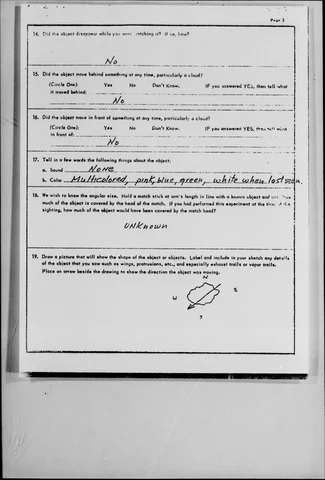 Page 3
14. Did the object disappear while you were watching it? If so, how?
No
15. Did the object move behind something at any time, particularly a cloud?
(Circle One): Yes No Don't Know. IF you answered YES, then tell what
it moved behind:
No
16. Did the object move in front of something at any time, particularly a cloud?
(Circle One): Yes No Don't Know. IF you answered YES, then tell what
in front of:
No
17. Tell in a few words the following things about the object.
a. Sound None
b. Color Multicolored, pink, blue, green, white when last seen.
18. We wish to know the angular size. Hold a match stick at arm's length in line with a known object and note how
much of the object is covered by the head of the match. If you had performed this experiment at the time of the
sighting, how much of the object would have been covered by the match head?
UNKNOWN
19. Draw a picture that will show the shape of the object or objects. Label and include in your sketch any details
of the object that you saw such as wings, protrusions, etc., and especially exhaust trails or vapor trails.
Place an arrow beside the drawing to show the direction the object was moving.
N
W E
S